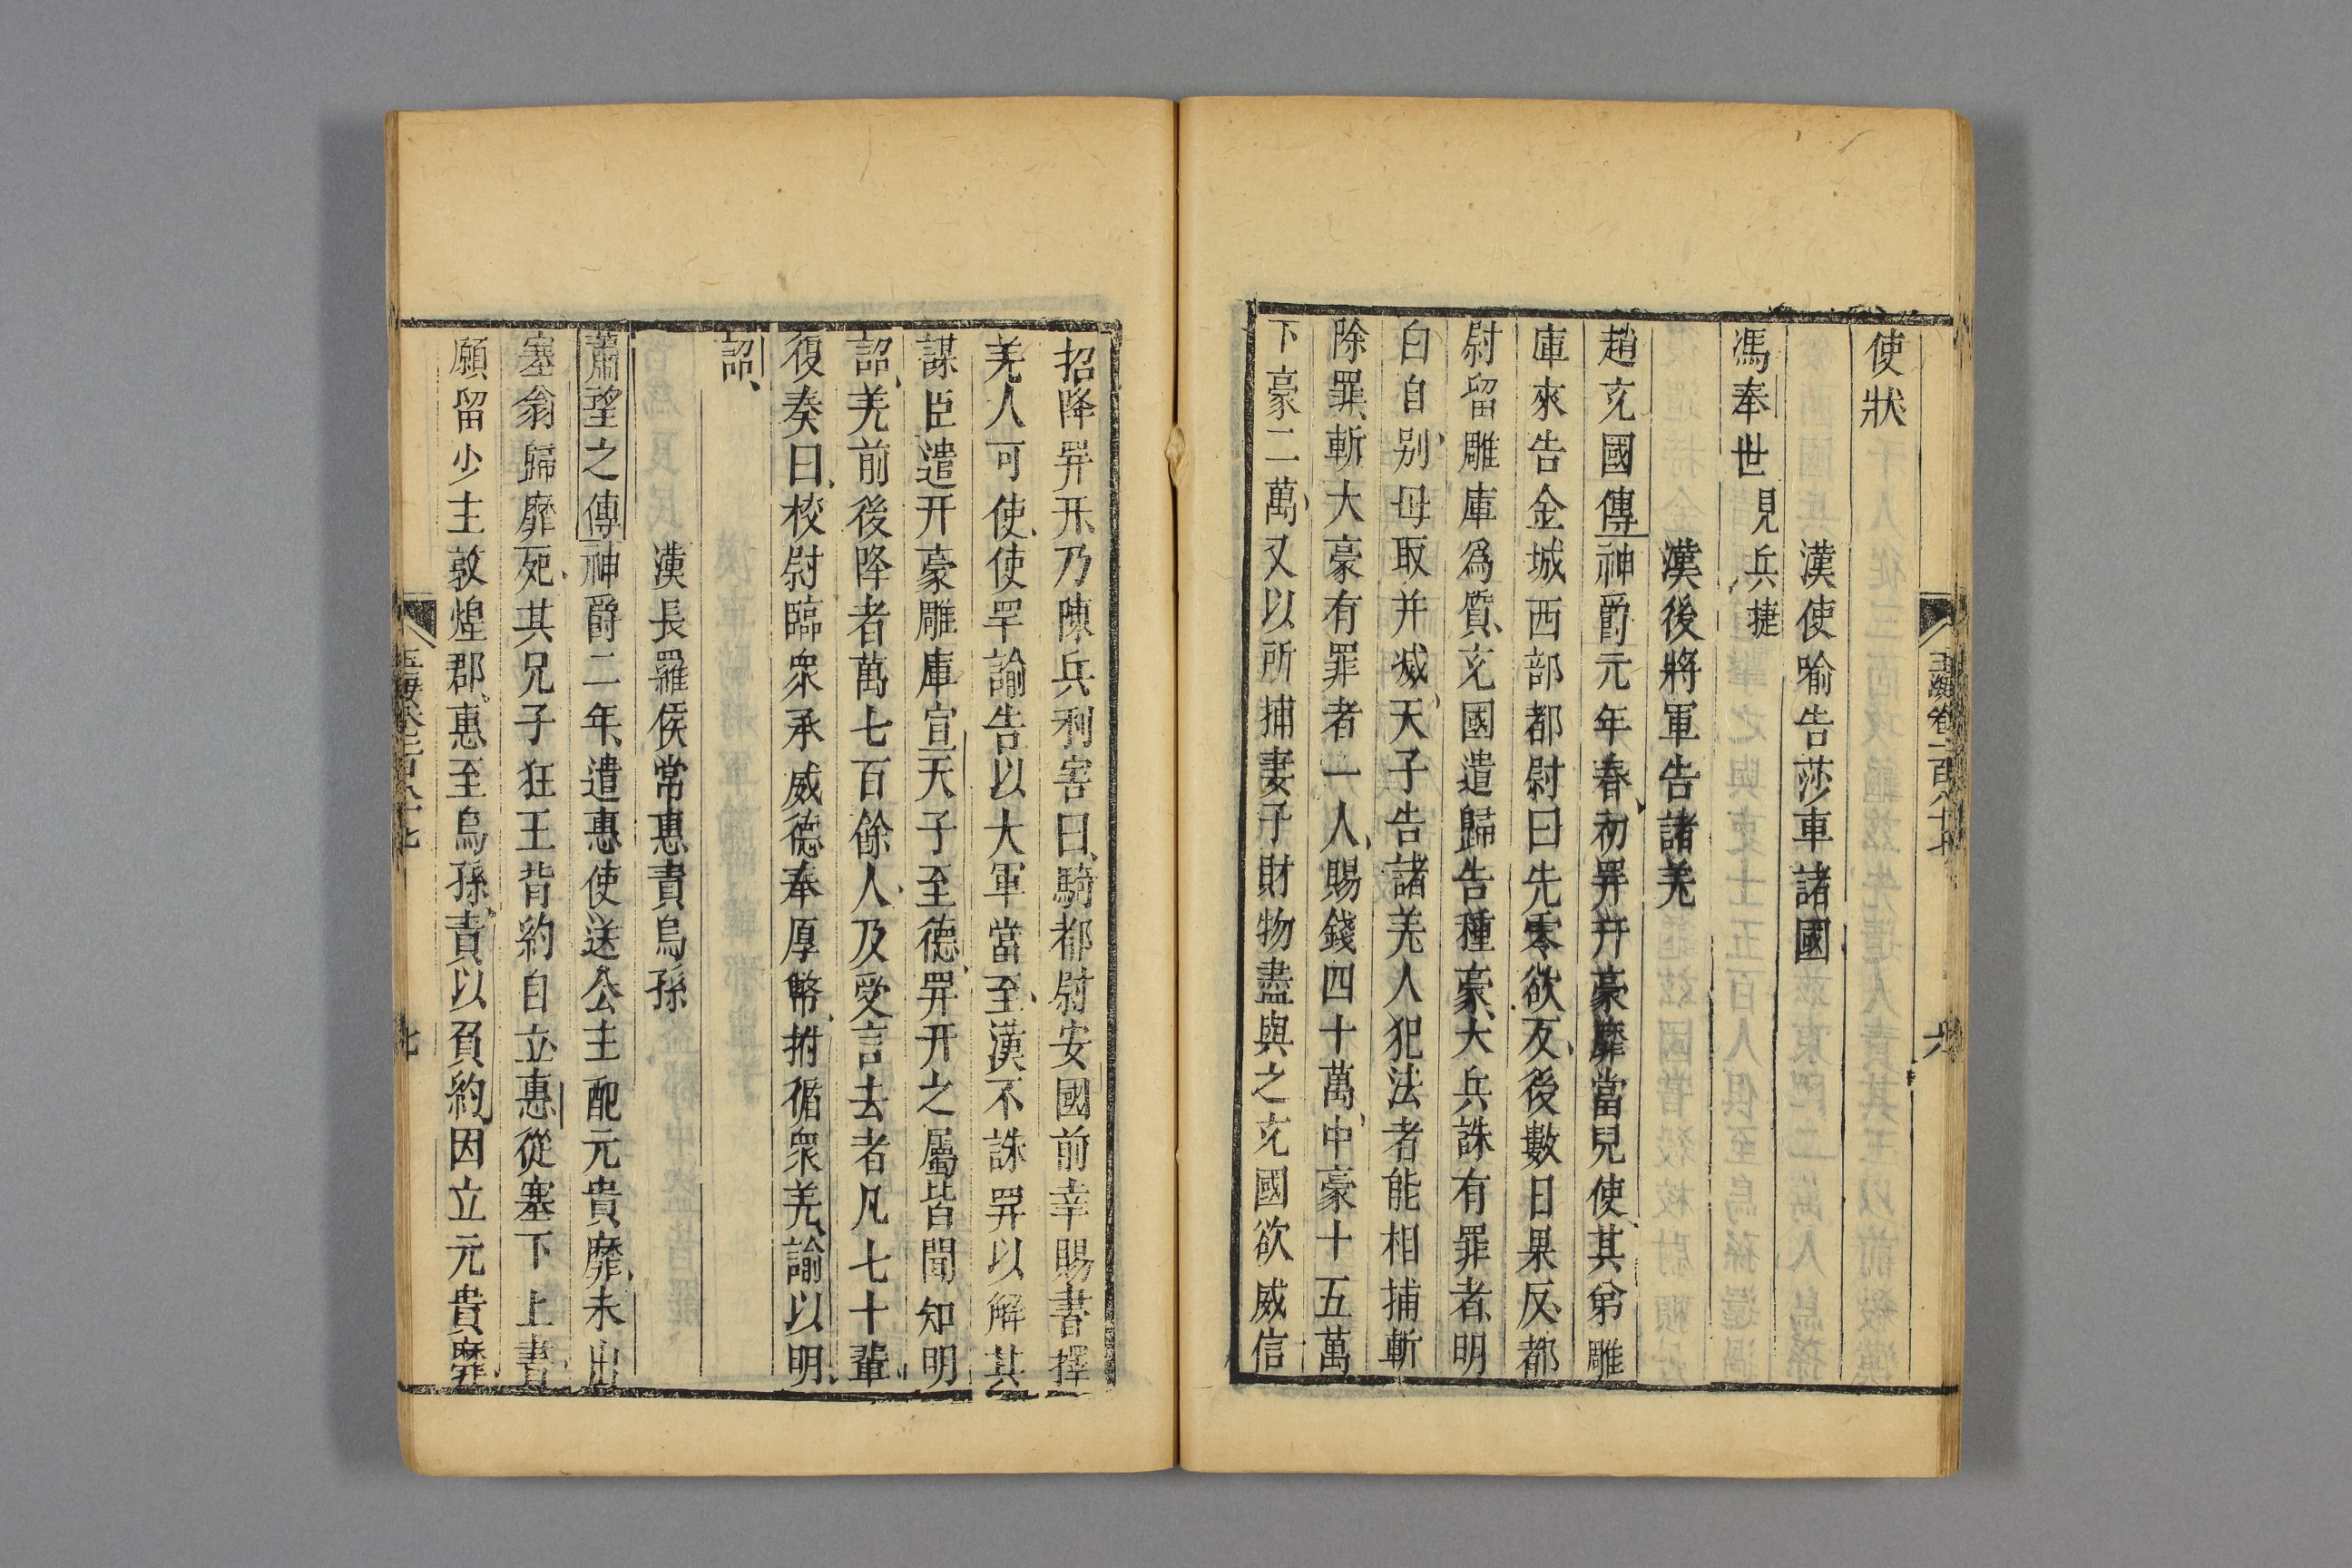 玉海卷一百八十七
六
使狀
漢使喻告莎車諸國
馮奉世見兵捷
漢後將軍告諸羌
趙充國傳神爵元年春初䍐幵豪靡當兒使其弟雕
庫來告金城西部都尉曰先零欲反後數日果反都
尉留雕庫爲質充國遣歸告種豪大兵誅有罪者明
白自别毋取并滅天子告諸羌人犯法者能相捕斬
除罪斬大豪有罪者一人賜錢四十萬中豪十五萬
下豪二萬又以所捕妻子財物盡與之充國欲威信
招降䍐幵乃陳兵利害曰騎都尉安國前幸賜書擇
羌人可使使罕諭告以大軍當至漢不誅䍐以解其
謀臣遣幵豪雕庫宣天子至德䍐幵之屬皆聞知明
詔羌前後降者萬七百餘人及受言去者凡七十輩
復奏曰校尉臨衆承威德奉厚幣拊循衆羌諭以明
詔
漢長羅侯常惠責烏孫
蕭望之傳神爵二年遣惠使送公主配元貴靡未出
塞翁歸靡死其兄子狂王背約自立惠從塞下上書
願留少主敦煌郡惠至烏孫責以負約因立元貴靡
玉海卷一百八十七
七